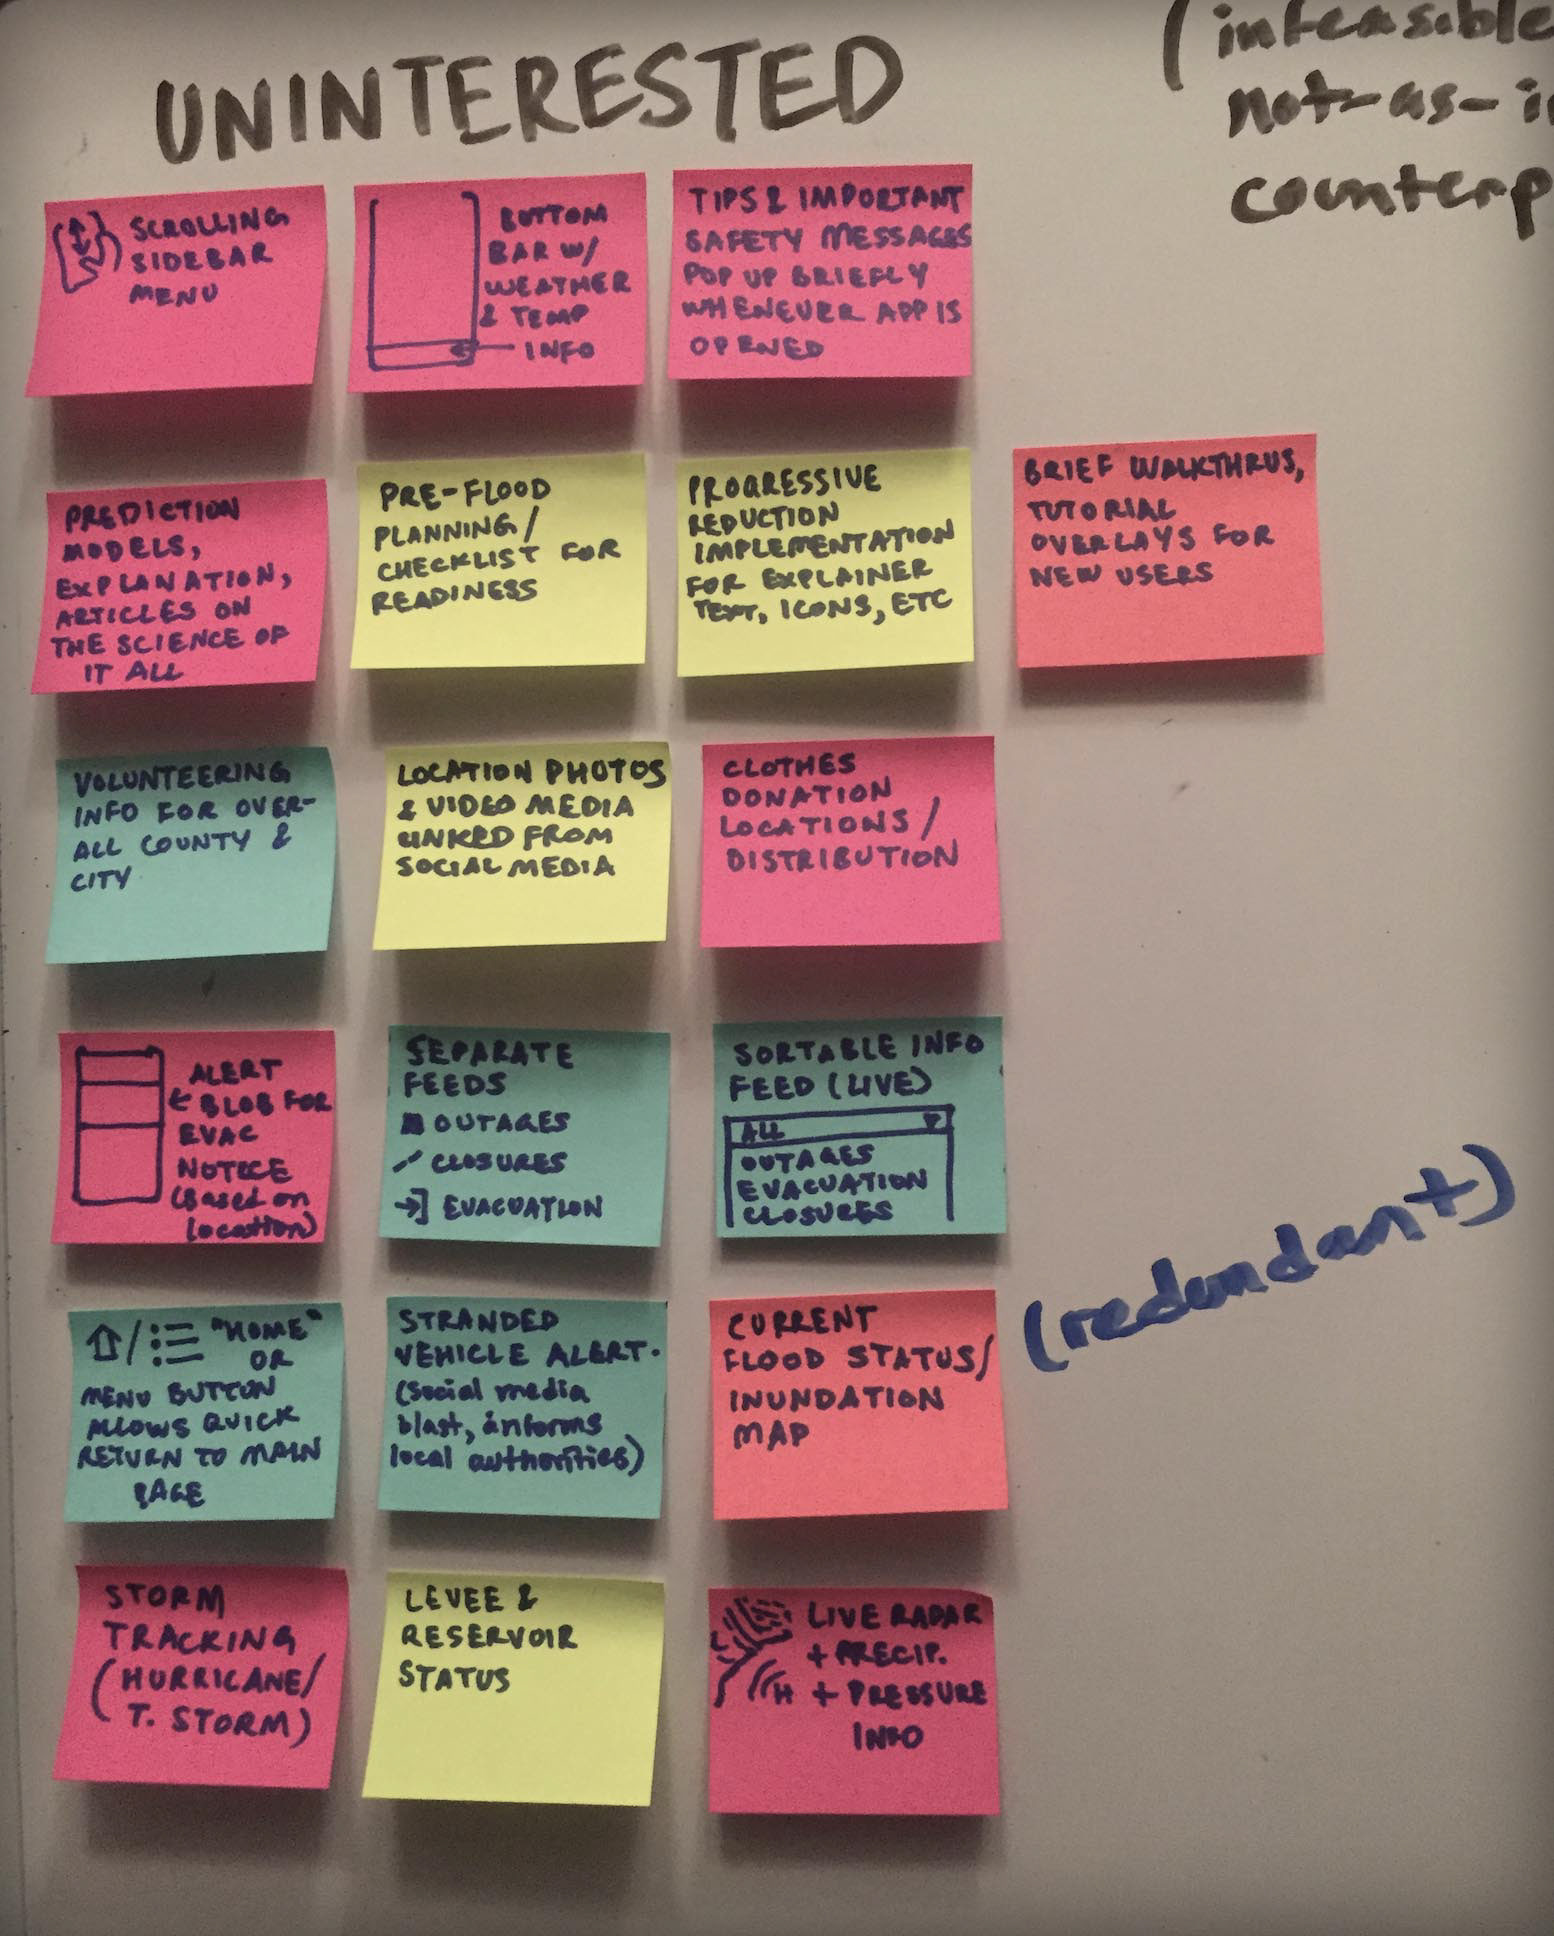 UNINTERESTED
(infeasible
not-as-i
counterp
SCROLLING
SIDEBAR
MENU
BOTTOM
BAR W/
WEATHER
& TEMP
INFO
TIPS & IMPORTANT
SAFETY MESSAGES
POP UP BRIEFLY
WHENEVER APP IS
OPENED
PREDICTION
MODELS,
EXPLANATION,
ARTICLES ON
THE SCIENCE OF
IT ALL
PRE-FLOOD
PLANNING/
CHECKLIST FOR
READINESS
PROGRESSIVE
REDUCTION
IMPLEMENTATION
FOR EXPLAINER
TEXT, ICONS, ETC
BRIEF WALKTHRUS,
TUTORIAL
OVERLAYS FOR
NEW USERS
VOLUNTEERING
INFO FOR OVER-
ALL COUNTY &
CITY
LOCATION PHOTOS
& VIDEO MEDIA
LINKED FROM
SOCIAL MEDIA
CLOTHES
DONATION
LOCATIONS/
DISTRIBUTION
ALERT
BLOB FOR
EVAC
NOTICE
(Based on
location)
SEPARATE
FEEDS
OUTAGES
CLOSURES
EVACUATION
SORTABLE INFO
FEED (LIVE)
ALL
OUTAGES
EVACUATION
CLOSURES
(redundant)
/ "HOME"
OR
MENU BUTTON
ALLOWS QUICK
RETURN TO MAIN
PAGE
STRANDED
VEHICLE ALERT.
(social media
blast, informs
local authorities)
CURRENT
FLOOD STATUS/
INUNDATION
MAP
STORM
TRACKING
(HURRICANE/
T. STORM)
LEVEE &
RESERVOIR
STATUS
L LIVE RADAR
+ PRECIP.
H + PRESSURE
INFO